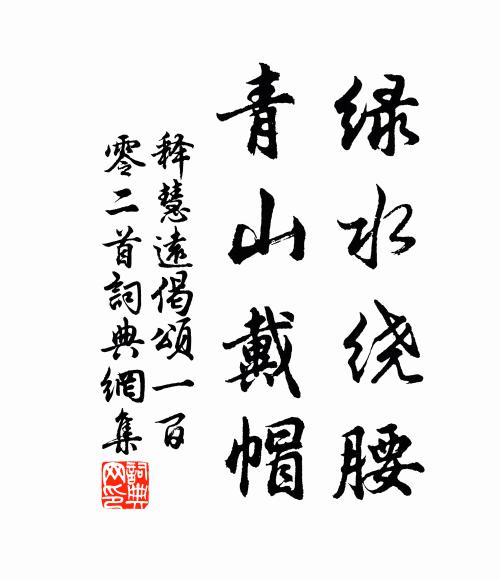 绿水绕腰
青山戴帽
释慧远偈颂一百
零二首词典网集
词典网印